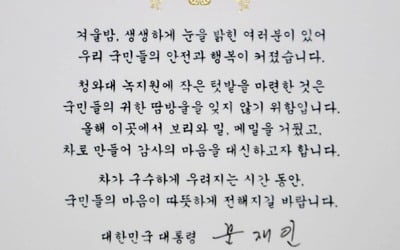 겨울밤, 생생하게 눈을 밝힌 여러분이 있어
우리 국민들의 안전과 행복이 커졌습니다.
청와대 녹지원에 작은 텃밭을 마련한 것은
국민들의 귀한 땀방울을 잊지 않기 위함입니다.
올해 이곳에서 보리와 밀, 메밀을 거뒀고,
차로 만들어 감사의 마음을 대신하고자 합니다.
차가 구수하게 우려지는 시간 동안,
국민들의 마음이 따뜻하게 전해지길 바랍니다.
대한민국 대통령 문재인